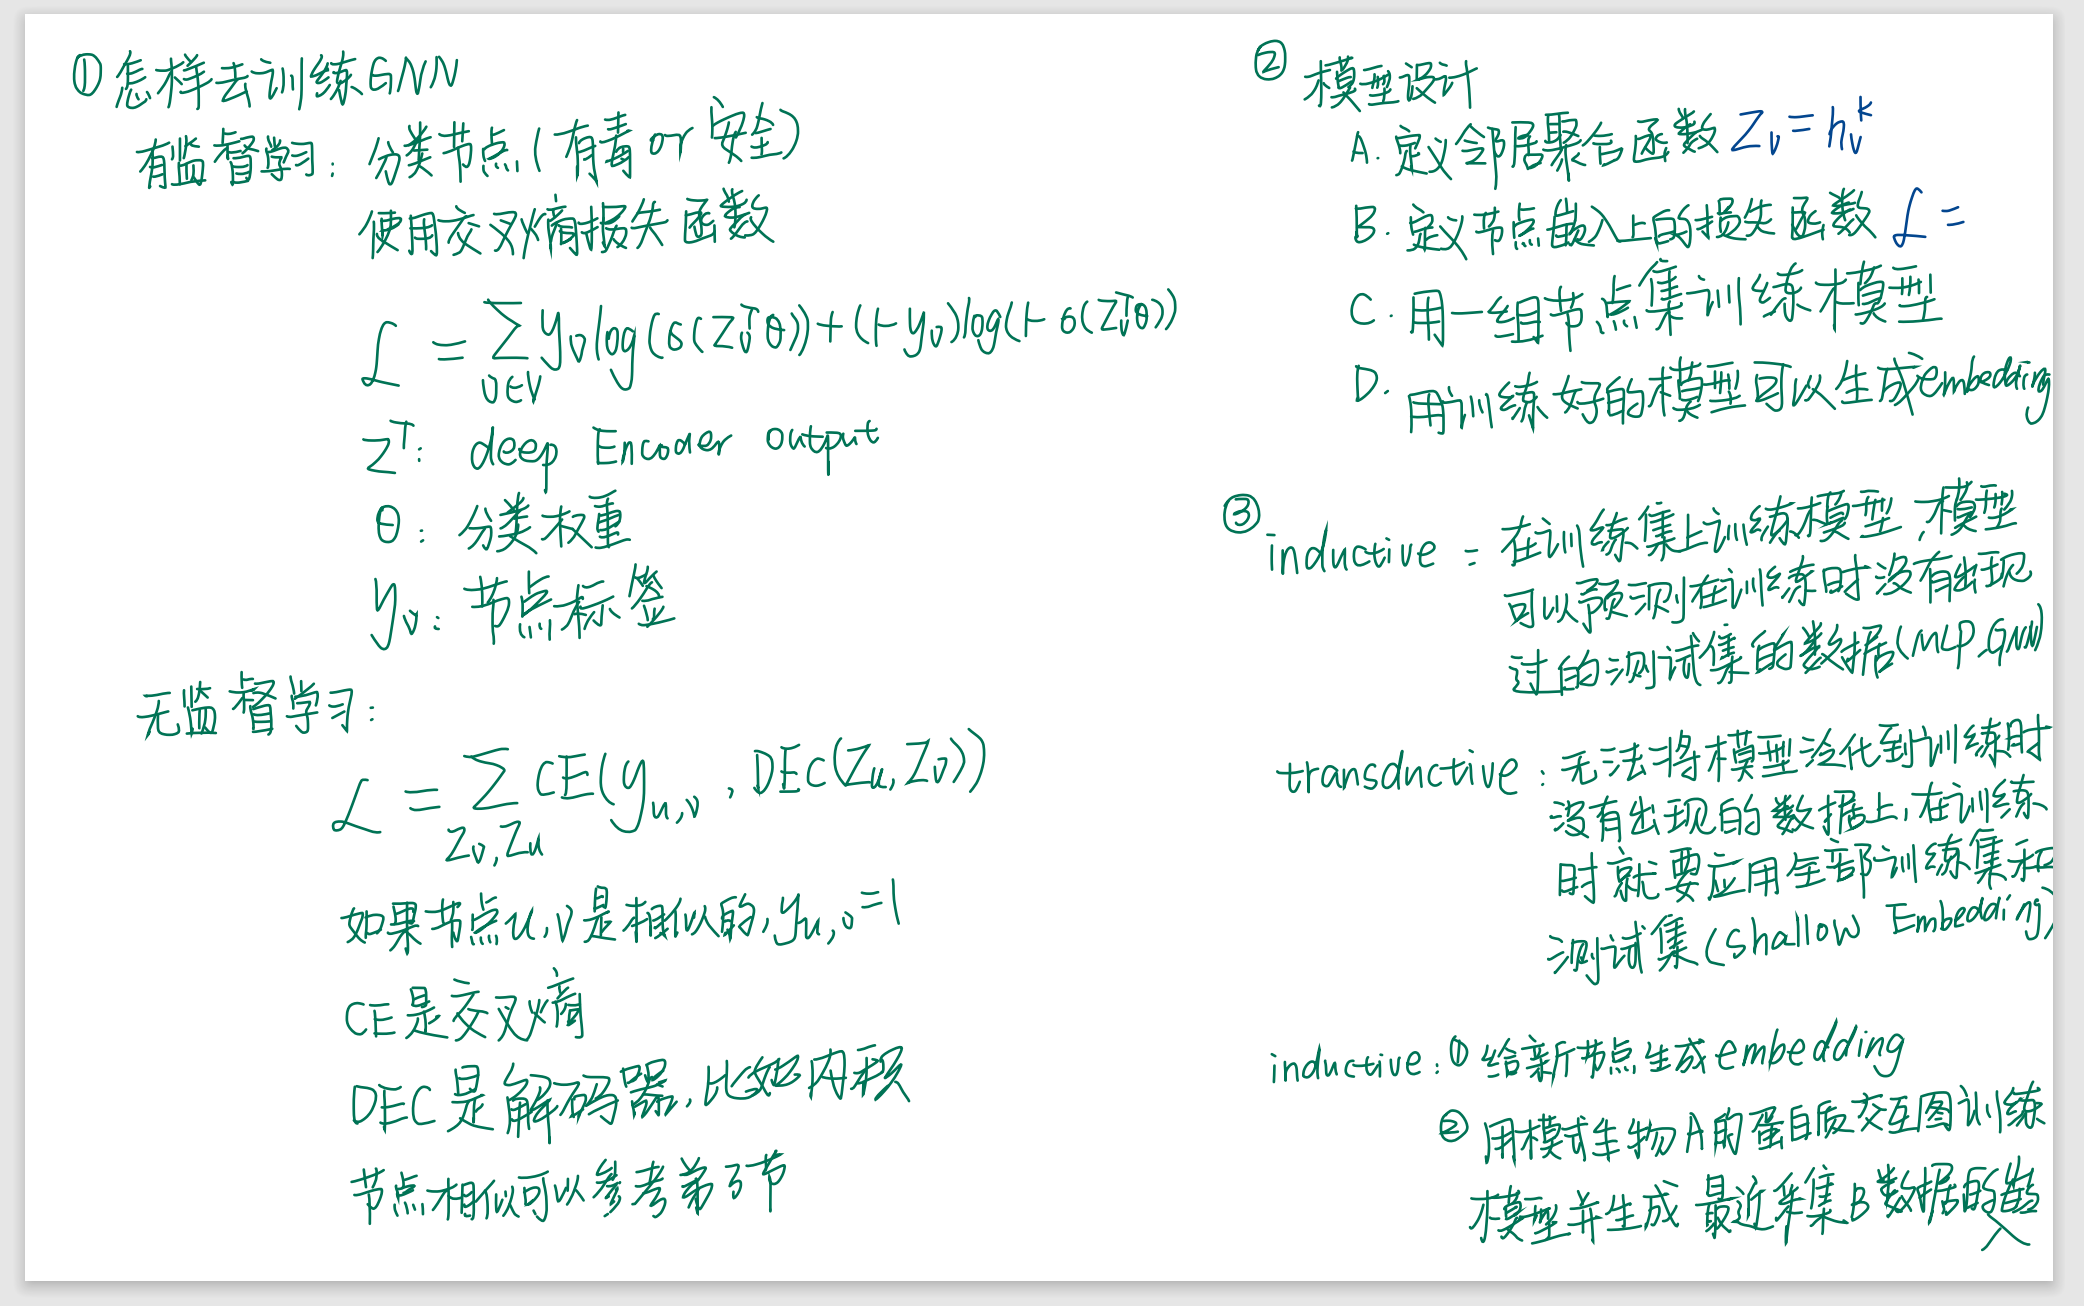 ① 怎样去训练GNN
有监督学习: 分类节点(有毒 or 安全)
使用交叉熵损失函数
ℒ = ∑ y_v log(σ(Z_v^T θ)) + (1-y_v) log(1-σ(Z_v^T θ))
v∈V
Z^T: deep Encoder output
θ: 分类权重
y_v: 节点标签
无监督学习:
ℒ = ∑ CE(y_{u,v}, DEC(Z_u, Z_v))
Z_v, Z_u
如果节点u,v是相似的, y_{u,v}=1
CE是交叉熵
DEC是解码器,比如内积
节点相似可以参考第3节
② 模型设计
A. 定义邻居聚合函数 Z_v = h_v^k
B. 定义节点嵌入上的损失函数 ℒ =
C. 用一组节点集训练模型
D. 用训练好的模型可以生成embedding
③ inductive = 在训练集上训练模型,模型
可以预测在训练时没有出现
过的测试集的数据(MLP.GNN)
transductive: 无法将模型泛化到训练时
没有出现的数据上,在训练
时就要应用全部训练集和
测试集(Shallow Embedding)
inductive: ① 给新节点生成embedding
② 用模式生物A的蛋白质交互图训练
模型并生成最近采集B数据的嵌
入